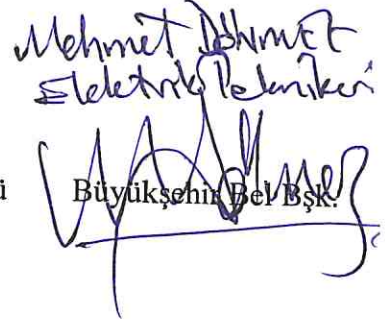 Mehmet Dönmez
Elektrik Teknikeri
ü Büyükşehir Bel Bşk.